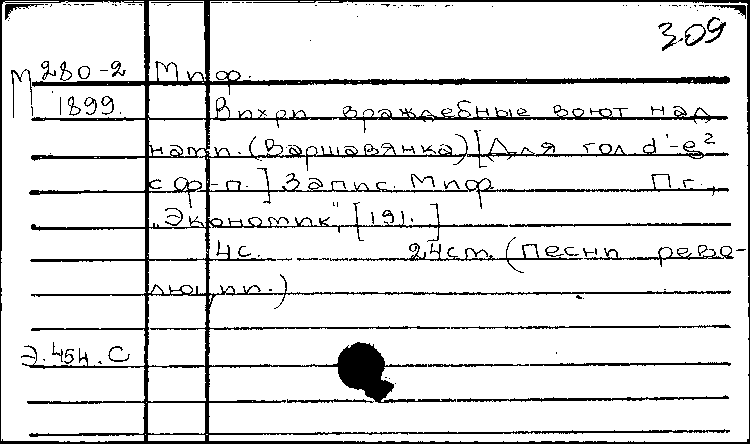 309
М 280-2 Миф.
1899. Вихри враждебные воют над
нами. (Варшавянка) [Для гол d¹-es²
с ф-п.] Запис. Миф Пг.,
"Экономик", [191. ]
4с. 24см. (Песни рево-
люции.)
Э.454.С